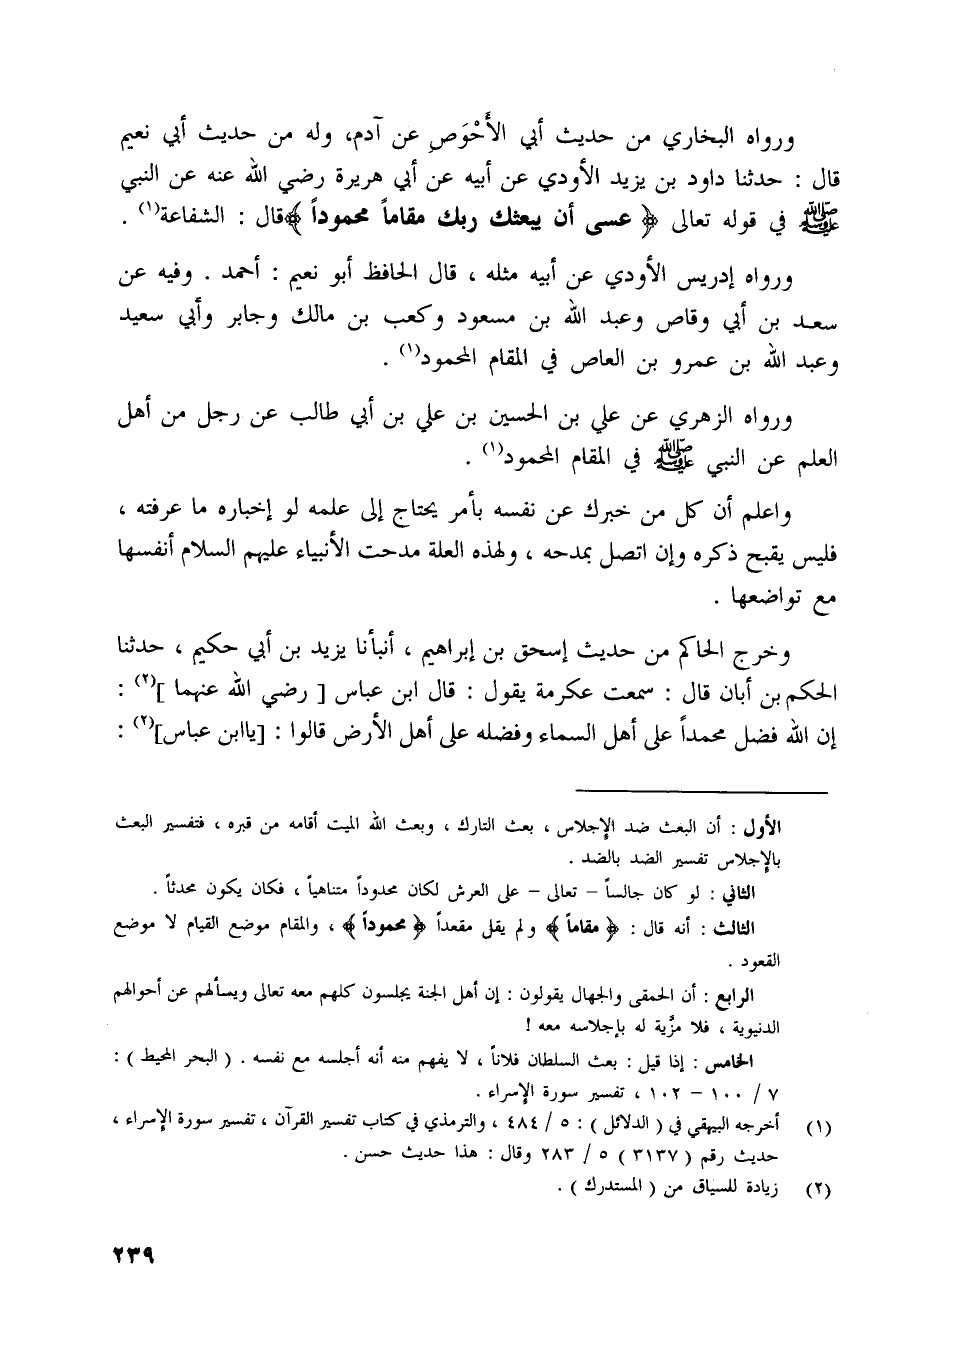 ورواه البخاري من حديث أبي الأَحْوَصِ عن آدم، وله من حديث أبي نعيم
قال : حدثنا داود بن يزيد الأودي عن أبيه عن أبي هريرة رضي الله عنه عن النبي
ﷺ في قوله تعالى ﴿ عسى أن يبعثك ربك مقاماً محموداً ﴾قال : الشفاعة(١) .
ورواه إدريس الأودي عن أبيه مثله ، قال الحافظ أبو نعيم : أحمد . وفيه عن
سعد بن أبي وقاص وعبد الله بن مسعود وكعب بن مالك وجابر وأبي سعيد
وعبد الله بن عمرو بن العاص في المقام المحمود(١) .
ورواه الزهري عن علي بن الحسين بن علي بن أبي طالب عن رجل من أهل
العلم عن النبي ﷺ في المقام المحمود(١) .
واعلم أن كل من خبرك عن نفسه بأمر يحتاج إلى علمه لو إخباره ما عرفته ،
فليس يقبح ذكره وإن اتصل بمدحه ، ولهذه العلة مدحت الأنبياء عليهم السلام أنفسها
مع تواضعها .
وخرج الحاكم من حديث إسحق بن إبراهيم ، أنبأنا يزيد بن أبي حكيم ، حدثنا
الحكم بن أبان قال : سمعت عكرمة يقول : قال ابن عباس [ رضي الله عنهما ](٢) :
إن الله فضل محمداً على أهل السماء وفضله على أهل الأرض قالوا : [ياابن عباس](٢) :
الأول : أن البعث ضد الإجلاس ، بعث التارك ، وبعث الله الميت أقامه من قبره ، فتفسير البعث
بالإجلاس تفسير الضد بالضد .
الثاني : لو كان جالساً – تعالى – على العرش لكان محدوداً متناهياً ، فكان يكون محدثاً .
الثالث : أنه قال : ﴿ مقاماً ﴾ ولم يقل مقعداً ﴿ محموداً ﴾ ، والمقام موضع القيام لا موضع
القعود .
الرابع : أن الحمقى والجهال يقولون : إن أهل الجنة يجلسون كلهم معه تعالى ويسألهم عن أحوالهم
الدنيوية ، فلا مزَّية له بإجلاسه معه !
الخامس : إذا قيل : بعث السلطان فلاناً ، لا يفهم منه أنه أجلسه مع نفسه . ( البحر المحيط ) :
٧ / ١٠٠ – ١٠٢ ، تفسير سورة الإسراء .
(١) أخرجه البيهقي في ( الدلائل ) : ٥ / ٤٨٤ ، والترمذي في كتاب تفسير القرآن ، تفسير سورة الإسراء ،
حديث رقم ( ٣١٣٧ ) ٥ / ٢٨٣ وقال : هذا حديث حسن .
(٢) زيادة للسياق من ( المستدرك ) .
٢٣٩